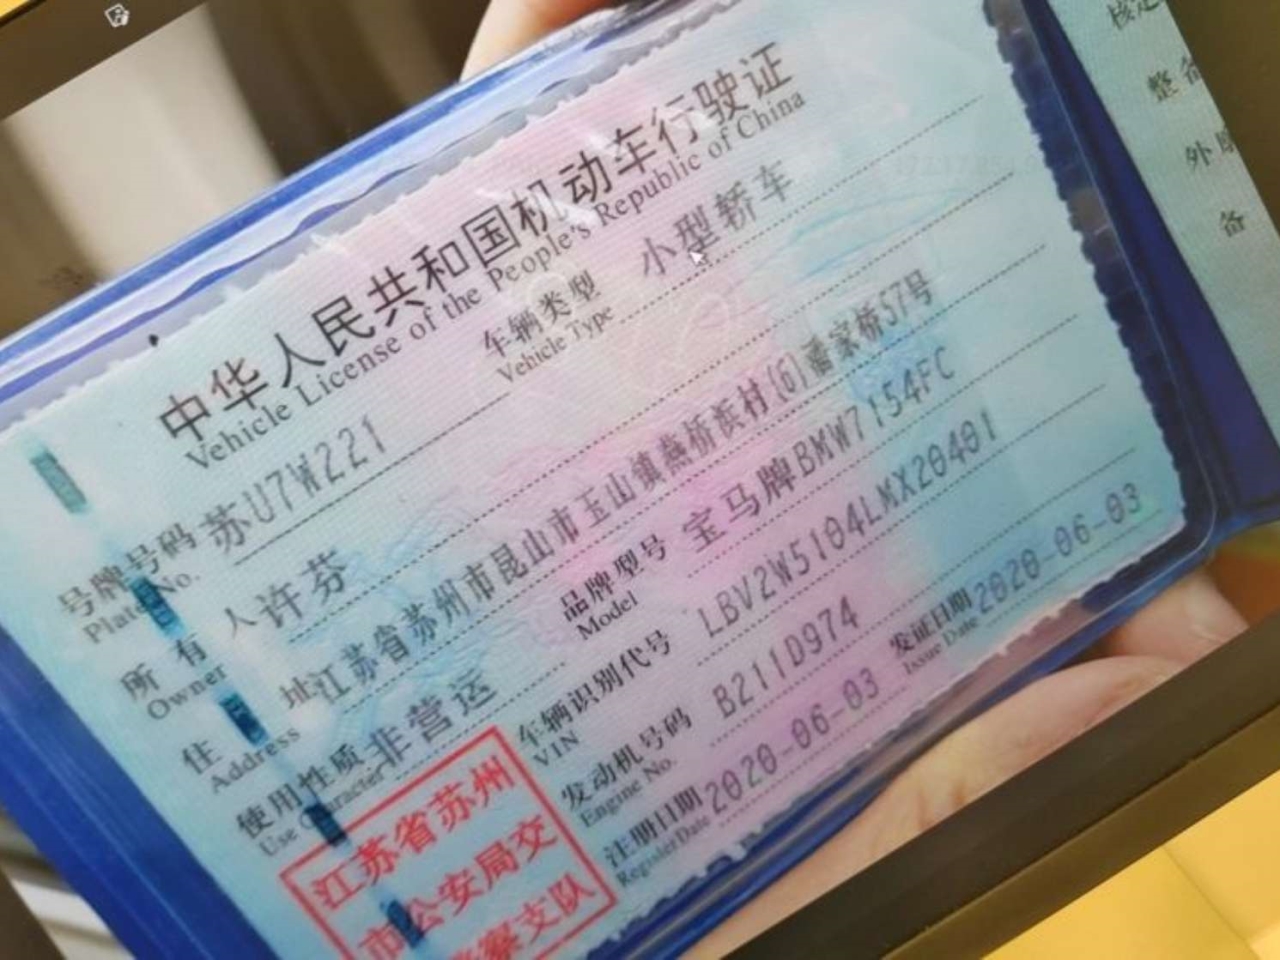 中华人民共和国机动车行驶证
Vehicle License of the People's Republic of China
号牌号码 苏U7W221 车辆类型 小型轿车
Plate No. Vehicle Type
所有人 许芬
Owner
住址 江苏省苏州市昆山市玉山镇燕桥浜村(6)潘家桥57号
Address
使用性质 非营运 品牌型号 宝马牌BMW7154FC
Use Character Model
车辆识别代号 LBV2W5104LMX20401
VIN
发动机号码 B211D974
Engine No.
注册日期 2020-06-03 发证日期 2020-06-03
Register Date Issue Date
江苏省苏州
市公安局交
警察支队
核定
整备
外
备